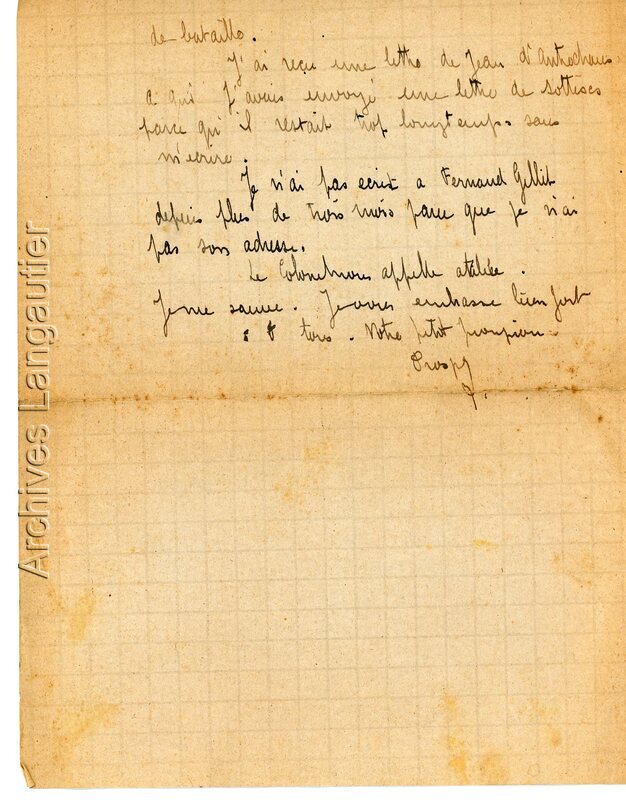 de bataille.
J'ai reçu une lettre de Jean d'Antrechaus
a qui j'avais envoyé une lettre de sottises
parce qu'il restait trop longtemps sans
m'écrire.
Je n'ai pas ecrit a Fernand Gillet
depuis plus de trois mois parce que je n'ai
pas son adresse.
Le Colonel nous appelle
Je me sauve. Je vous embrasse bien fort
tous. Votre petit pioupiou.
Prosp
Archives Langautier